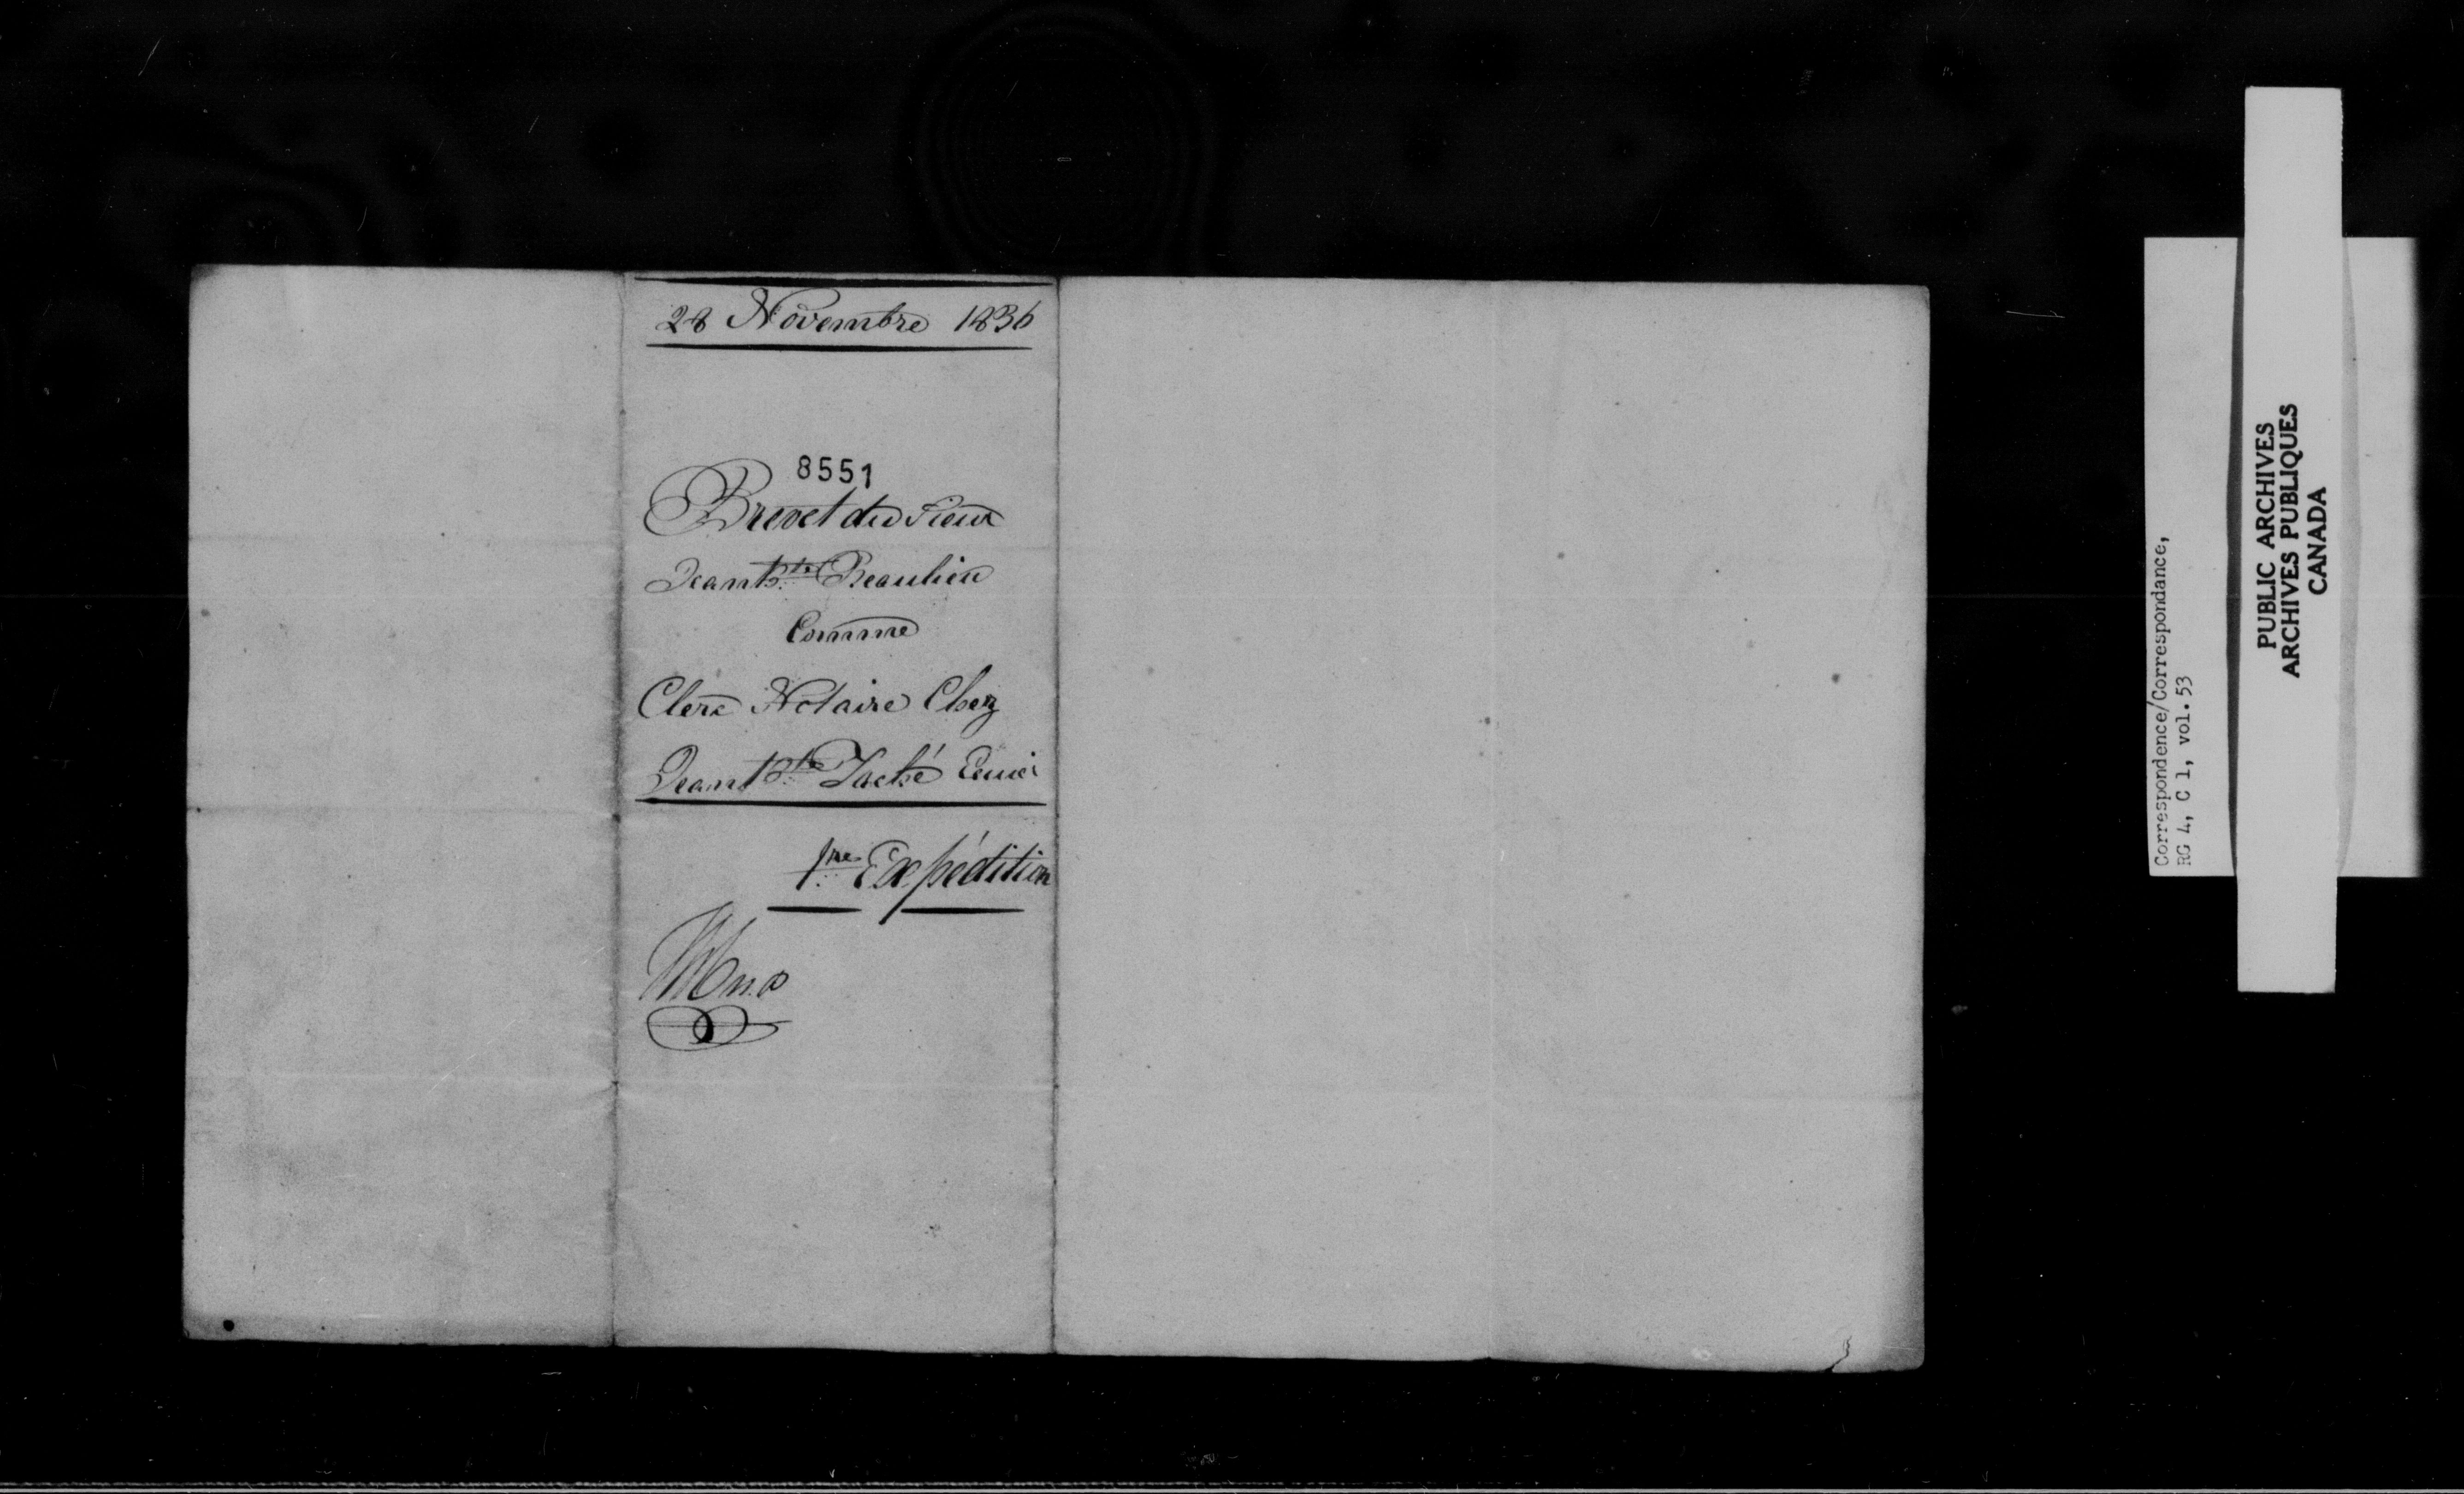 28 Novembre 1836
8551
Brevet du Sieur
Jean Bte Beaulieu
Comme
Clerc Notaire Chez
Jean Bte Taché Ecuier
1re Expédition
Correspondence/Correspondance,
RG 4, C 1, vol. 53
PUBLIC ARCHIVES
ARCHIVES PUBLIQUES
CANADA